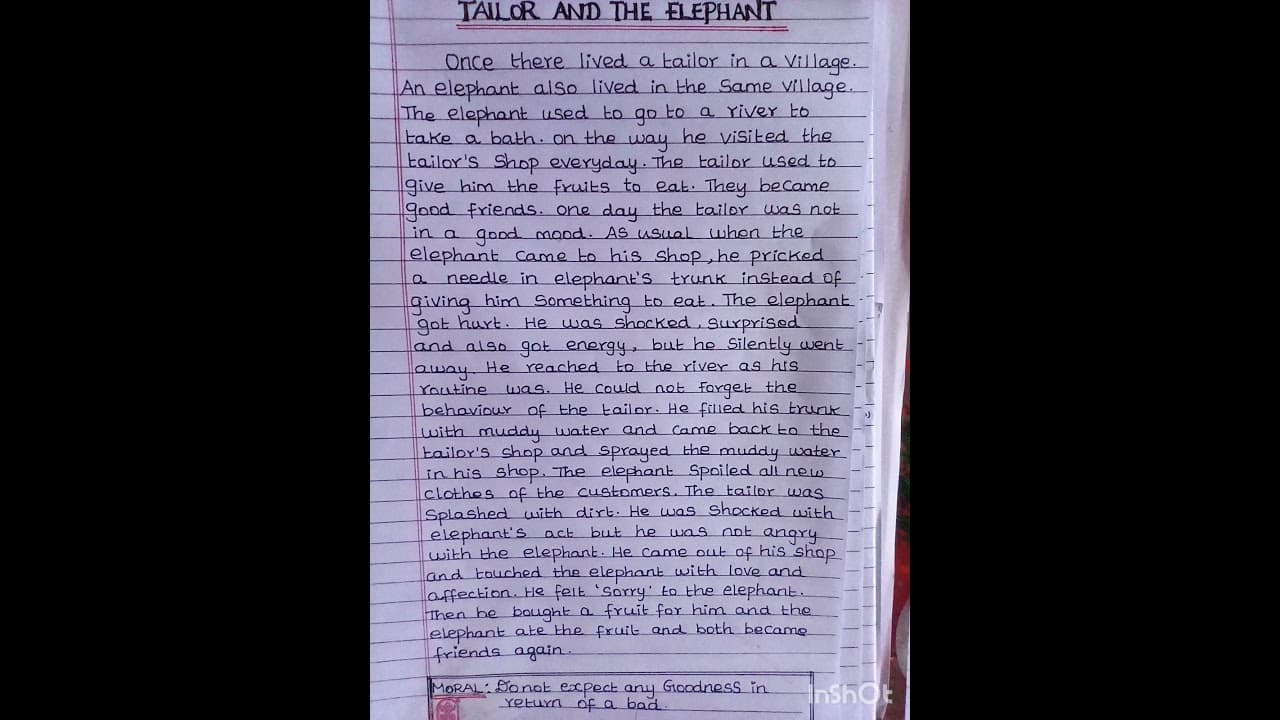 TAILOR AND THE ELEPHANT
Once there lived a tailor in a village.
An elephant also lived in the same village.
The elephant used to go to a river to
take a bath. on the way he visited the
tailor's shop everyday. The tailor used to
give him the fruits to eat. They became
good friends. one day the tailor was not
in a good mood. As usual when the
elephant came to his shop, he pricked
a needle in elephant's trunk instead of
giving him something to eat. The elephant
got hurt. He was shocked, surprised
and also got energy, but he silently went
away. He reached to the river as his
routine was. He could not forget the
behaviour of the tailor. He filled his trunk
with muddy water and came back to the
tailor's shop and sprayed the muddy water
in his shop. The elephant spoiled all new
clothes of the customers. The tailor was
splashed with dirt. He was shocked with
elephant's act but he was not angry
with the elephant. He came out of his shop
and touched the elephant with love and
affection. He felt 'sorry' to the elephant.
Then he bought a fruit for him and the
elephant ate the fruit and both became
friends again.
MORAL: Do not expect any Goodness in
return of a bad.
InShOt